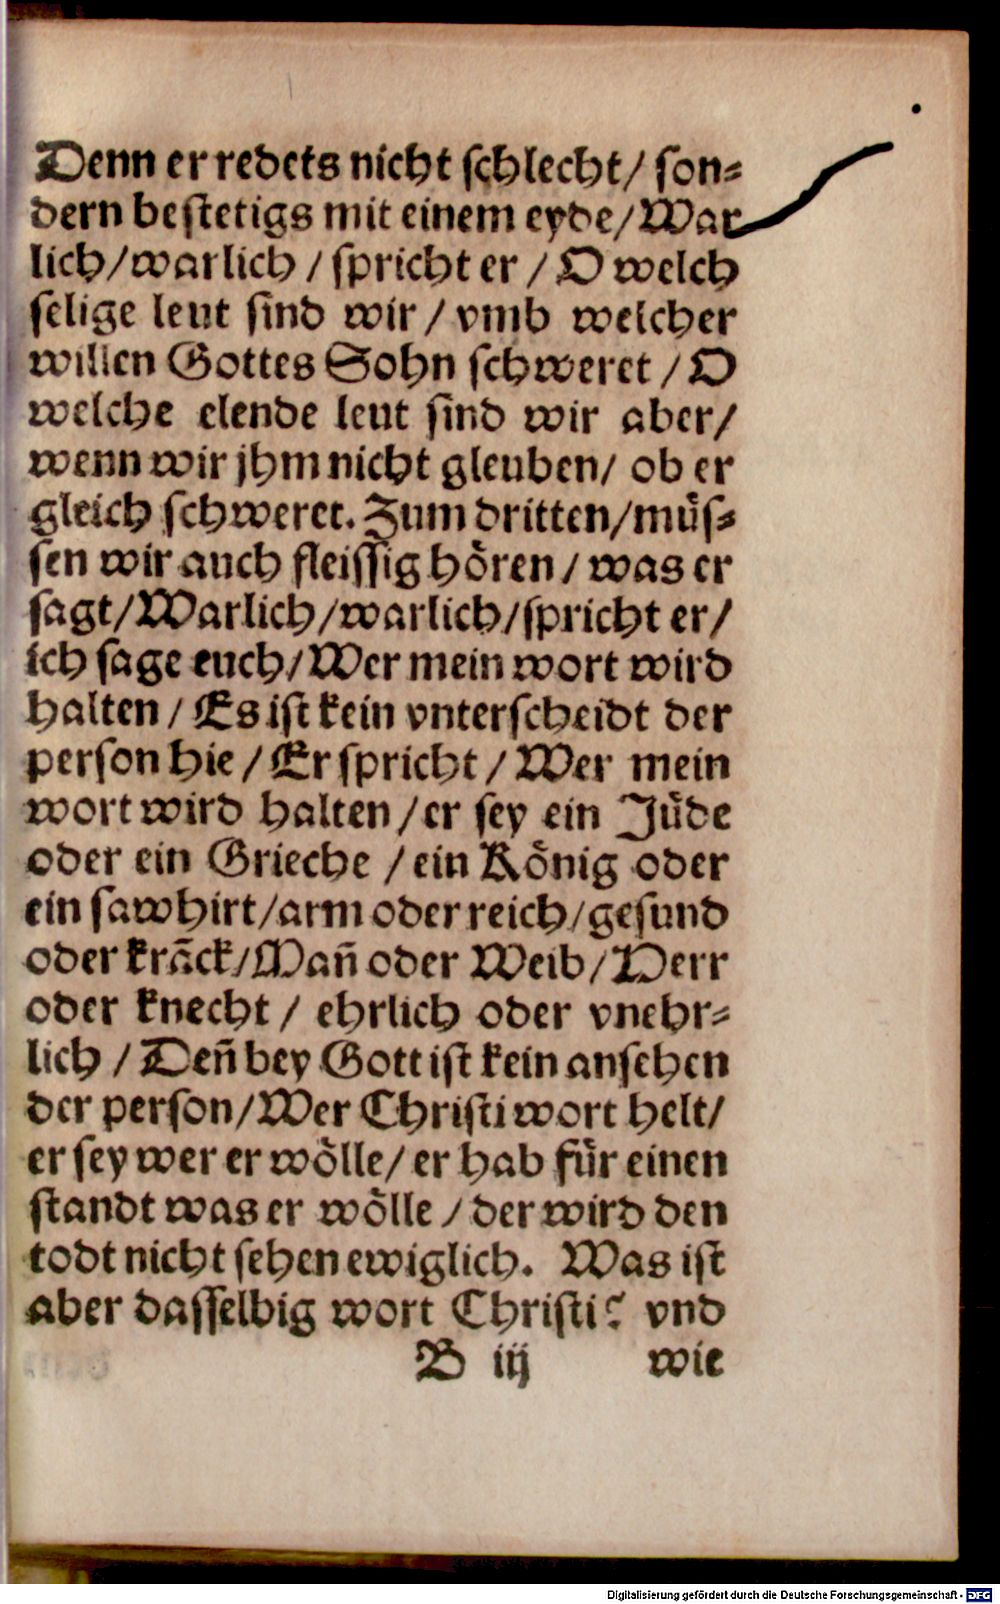 Denn er redets nicht schlecht/ son⸗
dern bestetigs mit einem eyde/ War
lich/ warlich / spricht er / O welch
selige leut sind wir / vmb welcher
willen Gottes Sohn schweret / O
welche elende leut sind wir aber/
wenn wir jhm nicht gleuben/ ob er
gleich schweret. Zum dritten/ müs⸗
sen wir auch fleissig hören / was er
sagt/ Warlich/ warlich/ spricht er/
ich sage euch/ Wer mein wort wird
halten / Es ist kein vnterscheidt der
person hie / Er spricht / Wer mein
wort wird halten / er sey ein Jüde
oder ein Grieche / ein König oder
ein sawhirt/ arm oder reich/ gesund
oder krãck/ Mañ oder Weib/ Herr
oder knecht / ehrlich oder vnehr⸗
lich / Deñ bey Gott ist kein ansehen
der person/ Wer Christi wort helt/
er sey wer er wölle/ er hab für einen
standt was er wölle / der wird den
todt nicht sehen ewiglich. Was ist
aber dasselbig wort Christi? vnd
B iij wie
Digitalisierung gefördert durch die Deutsche Forschungsgemeinschaft - DFG